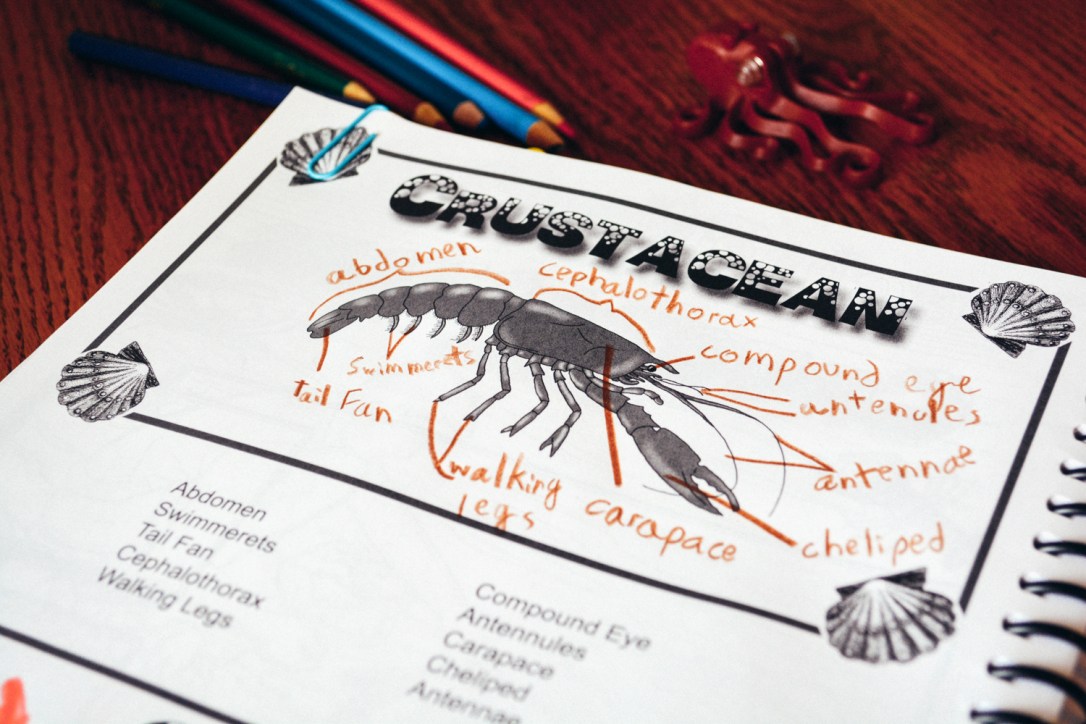 CRUSTACEAN
abdomen
cephalothorax
swimmerets
compound eye
antenules
Tail Fan
antennae
walking
legs
carapace
cheliped
Abdomen
Swimmerets
Tail Fan
Cephalothorax
Walking Legs
Compound Eye
Antennules
Carapace
Cheliped
Antennae